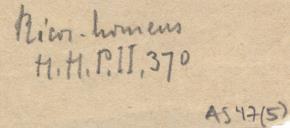 Ricos-homens
H. H. P. II, 370
AS 47(5)